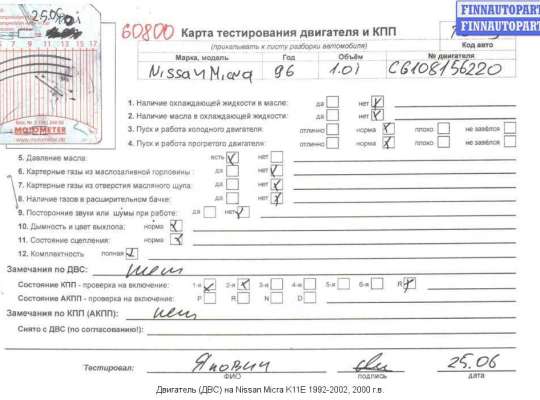 FINNAUTOPART
FINNAUTOPART
25.06
3 15 17
5 7 9 11 13 15 17
MOTOMETER
60800 Карта тестирования двигателя и КПП
(прикалывать к листу разборки автомобиля)
Код авто
Марка, модель Год Объём № двигателя
Nissan Micra 96 1.0i CG108156220
1. Наличие охлаждающей жидкости в масле: да нет
2. Наличие масла в охлаждающей жидкости: да нет
3. Пуск и работа холодного двигателя: отлично норма плохо не завёлся
4. Пуск и работа прогретого двигателя: отлично норма плохо не завёлся
5. Давление масла: есть нет
6. Картерные газы из маслозаливной горловины: да нет
7. Картерные газы из отверстия масляного щупа: да нет
8. Наличие газов в расширительном бачке: да нет
9. Посторонние звуки или шумы при работе: да нет
10. Дымность и цвет выхлопа: норма
11. Состояние сцепления: норма
12. Комплектность полная
Замечания по ДВС: нет
Состояние КПП - проверка на включение: 1-я 2-я 3-я 4-я 5-я 6-я R
Состояние АКПП - проверка на включение: P R N D
Замечания по КПП (АКПП): нет
Снято с ДВС (по согласованию!):
Тестировал: Янович 25.06
ФИО подпись дата
Двигатель (ДВС) на Nissan Micra K11E 1992-2002, 2000 г.в.